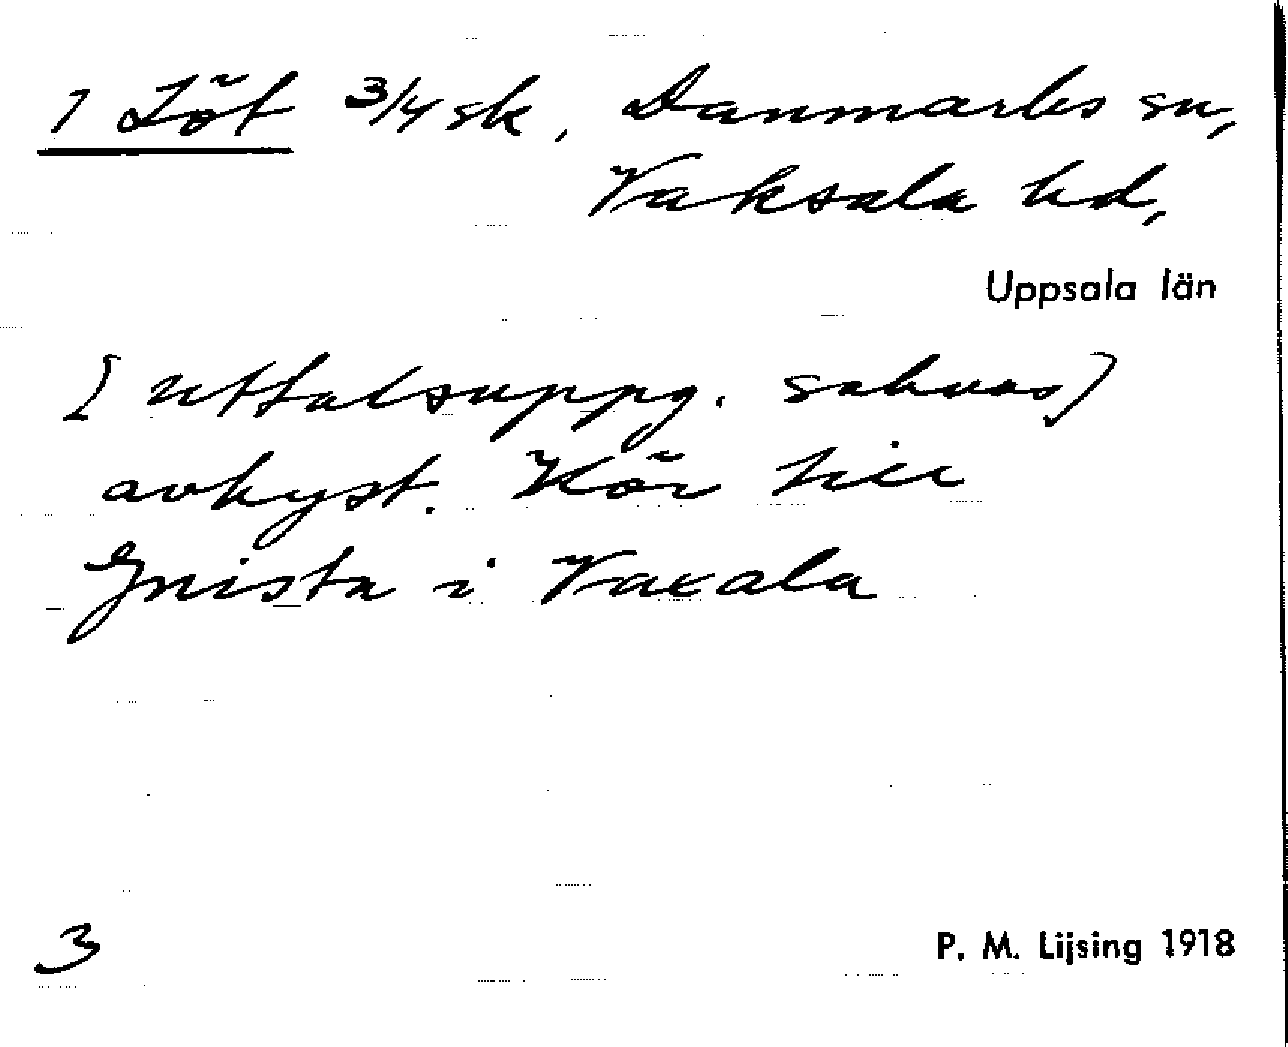 1 Löt 3/4 sk, Danmarks sn,
Vaksala hd,
Uppsala län
[uttalsuppg. saknas]
avhyst. Hör till
Gnista i Vaxala
3
P. M. Lijsing 1918